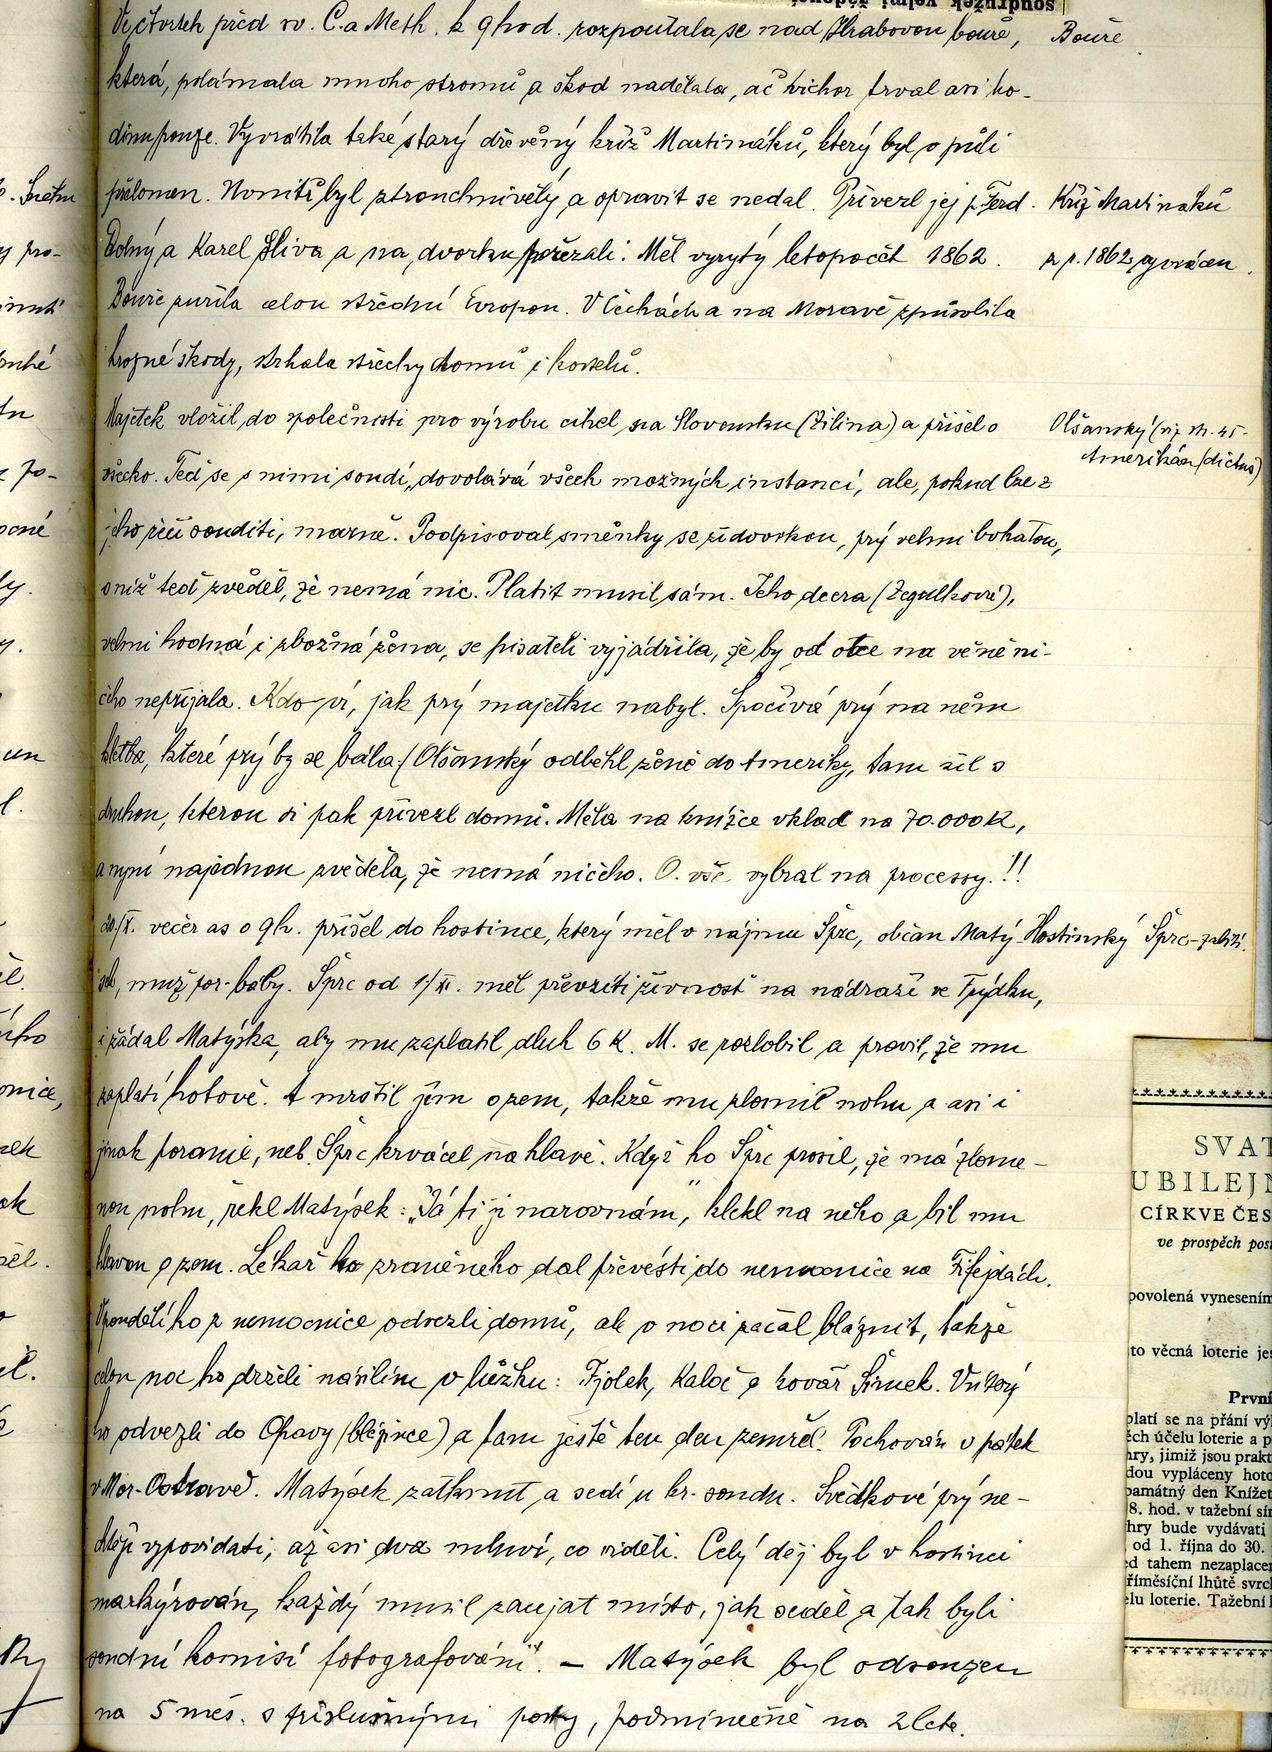 soudružek velmi žádoucí
Ve čtvrtek před sv. C. a Meth. k 9 hod. rozpoutala se nad Hrabovou bouře, Bouře
která, polámala mnoho stromů a škod nadělala, ač vichor trval asi ho-
dinu pouze. Vyvrátila také starý dřevěný kříž Martináků, který byl v půli
přelomen. Uvnitř byl ztrouchnivělý a opravit se nedal. Přivezl jej p. Ferd. Kříž Martináků
Volný a Karel Slíva a na dvorku pořezali. Měl vyrytý letopočet 1862. z r. 1862 vyvrácen.
Bouře zuřila celou střední Evropou. V Čechách a na Moravě způsobila
hrozné škody, strhala střechy domů i kostelů.
Majetek vložil do společnosti pro výrobu cihel na Slovensku (Žilina) a přišel o Olšanský (viz str. 45-
všecko. Teď se s nimi soudí, dovolává všech možných instancí, ale, pokud lze z Amerikán (dictus)
jeho řeči souditi, marně. Podpisoval směnky se židovkou, prý velmi bohatou,
o níž teď zvěděl, že nemá nic. Platit musil sám. Jeho dcera (Žegulková),
velmi hodná i zbožná žena, se pisateli vyjádřila, že by od otce na věně ni-
čeho nepřijala. Kdo ví, jak prý majetku nabyl. Spočívá prý na něm
kletba, které prý by se bála. (Olšanský odběhl ženě do Ameriky, tam žil s
druhou, kterou si pak přivezl domů. Měla na knížce vklad na 70.000 K,
a nyní najednou zvěděla, že nemá ničeho. O. vše vybral na processy.!!
20/X. večer as o 9 h. přišel do hostince, který měl v nájmu Šprc, občan Matý- Hostinský Šprc - zabit.
sek, muž por. baby. Šprc od 1/XI. měl převzíti živnost na nádraží ve Frýdku,
i žádal Matýska, aby mu zaplatil dluh 6 K. M. se rozlobil a pravil, že mu
zaplatí hotově. A mrštil jím o zem, takže mu zlomil nohu a asi i
jinak poranil, neb Šprc krvácel na hlavě. Když ho Šprc prosil, že má zlome-
nou nohu, řekl Matýsek: „Já ti ji narovnám", klekl na něho a bil mu
hlavou o zem. Lékař ho zraněného dal převésti do nemocnice na Fifejdách.
V pondělí ho z nemocnice odvezli domů, ale v noci začal bláznit, takže
celou noc ho drželi násilím v lůžku: Fjolek, Kaloč a kovář Šimek. V úterý
ho odvezli do Opavy (blázince) a tam ještě ten den zemřel. Pochován v pátek
v Mor. Ostravě. Matýsek zatknut a sedí u kr. soudu. Svědkové prý ne-
chtějí vypovídati, až asi dva mluví, co viděli. Celý děj byl v hostinci
markýrován, každý musil zaujat místo, jak seděl a tak byli
soudní komisí fotografováni". - Matýsek byl odsouzen
na 5 měs. s příslušnými posty, podmínečně na 2 léta.
SVAT
UBILEJN
CÍRKVE ČES
ve prospěch post
povolená vynesením
to věcná loterie jes
První
platí se na přání vý
ěch účelu loterie a p
hry, jimiž jsou prakt
dou vypláceny hoto
památný den Knížet
8. hod. v tažební sín
hry bude vydávati
od 1. října do 30.
ed tahem nezaplacen
říměsíční lhůtě svrch
elu loterie. Tažební l